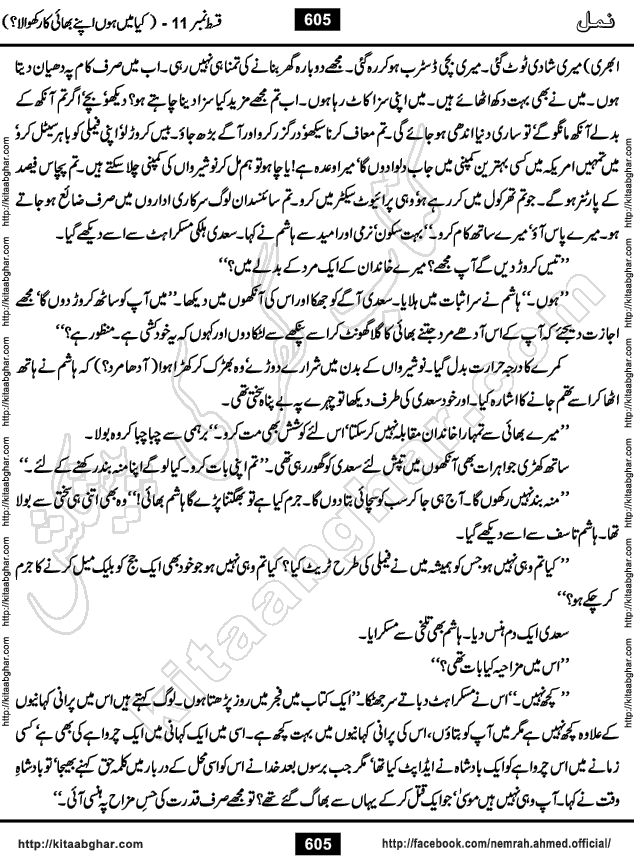 نمل
605
قسط نمبر 11 - ( کیا میں ہوں اپنے بھائی کا رکھوالا؟)
ابھری) میری شادی ٹوٹ گئی۔ میری بچی ڈسٹرب ہو کر رہ گئی۔ مجھے دوبارہ گھر بنانے کی تمنا ہی نہیں رہی۔ اب میں صرف کام پہ دھیان دیتا
ہوں۔ میں نے بھی بہت دکھ اٹھائے ہیں۔ میں اپنی سزا کاٹ رہا ہوں۔ اب تم مجھے مزید کیا سزا دینا چاہتے ہو؟ دیکھو بچے‘ اگر تم آنکھ کے
بدلے آنکھ مانگو گے‘ تو ساری دنیا اندھی ہو جائے گی۔ تم معاف کرنا سیکھو‘ درگزر کرو اور آگے بڑھ جاؤ۔ بیس کروڑ لو‘ اپنی فیملی کو باہر سیٹل کرو‘
میں تمہیں امریکہ میں کسی بہترین کمپنی میں جاب دلوا دوں گا‘ میرا وعدہ ہے! یا چاہو تو ہم مل کر نوشیرواں کی کمپنی چلا سکتے ہیں۔ تم پچاس فیصد
کے پارٹنر ہو گے۔ جو تم تھر کول میں کر رہے ہو‘ وہی پرائیوٹ سیکٹر میں کرو۔ تم سائنسدان لوگ سرکاری اداروں میں صرف ضائع ہو جاتے
ہو۔ میرے پاس آؤ‘ میرے ساتھ کام کرو۔‘‘ بہت سکون‘ نرمی اور امید سے ہاشم نے کہا۔ سعدی ہلکی مسکراہٹ سے اسے دیکھے گیا۔
’’تیس کروڑ دیں گے آپ مجھے؟ میرے خاندان کے ایک مرد کے بدلے میں؟‘‘
’’ہوں۔‘‘ ہاشم نے سر اثبات میں ہلایا۔ سعدی آگے کو جھکا اور اس کی آنکھوں میں دیکھا۔ ’’میں آپ کو ساٹھ کروڑ دوں گا‘ مجھے
اجازت دیجئے کہ آپ کے اس آدھے مرد جتنے بھائی کا گلا گھونٹ کر اسے پنکھے سے لٹکا دوں اور کہوں کہ یہ خودکشی ہے۔ منظور ہے؟‘‘
کمرے کا درجہ حرارت بدل گیا۔ نوشیرواں کے بدن میں شرارے دوڑے‘ وہ بھڑک کر کھڑا ہوا (آدھا مرد؟) کہ ہاشم نے ہاتھ
اٹھا کر اسے تھم جانے کا اشارہ کیا۔ اور خود سعدی کی طرف دیکھا تو چہرے پہ بے پناہ سختی تھی۔
’’میرے بھائی سے تمہارا خاندان مقابلہ نہیں کر سکتا‘ اس لئے کوشش بھی مت کرو۔‘‘ برہمی سے چبا چبا کر وہ بولا۔
ساتھ کھڑی جواہرات بھی آنکھوں میں تپش لئے سعدی کو گھور رہی تھی۔ ’’تم اپنی بات کرو۔ کیا لو گے اپنا منہ بند رکھنے کے لئے۔‘‘
’’منہ بند نہیں رکھوں گا۔ آج ہی جا کر سب کو سچائی بتا دوں گا۔ جرم کیا ہے تو بھگتنا پڑے گا ہاشم بھائی!‘‘ وہ بھی اتنی ہی سختی سے بولا
تھا۔ ہاشم تاسف سے اسے دیکھے گیا۔
’’کیا تم وہی نہیں ہو جس کو ہمیشہ میں نے فیملی کی طرح ٹریٹ کیا؟ کیا تم وہی نہیں ہو جو خود بھی ایک جج کو بلیک میل کرنے کا جرم
کر چکے ہو؟‘‘
سعدی ایک دم ہنس دیا۔ ہاشم بھی تلخی سے مسکرایا۔
’’اس میں مزاحیہ کیا بات تھی؟‘‘
’’کچھ نہیں۔‘‘ اس نے مسکراہٹ دباتے سر جھٹکا۔ ’’ایک کتاب میں فجر میں روز پڑھتا ہوں۔ لوگ کہتے ہیں اس میں پرانی کہانیوں
کے علاوہ کچھ نہیں ہے مگر میں آپ کو بتاؤں‘ اس کی پرانی کہانیوں میں بہت کچھ ہے۔ اسی میں ایک کہانی میں ایک چرواہے کی بھی ہے‘ کسی
زمانے میں اس چرواہے کو ایک بادشاہ نے ایڈاپٹ کیا تھا‘ مگر جب برسوں بعد خدا نے اس کو اسی محل کے دربار میں کلمہ حق کہنے بھیجا‘ تو بادشاہِ
وقت نے کہا۔ آپ وہی نہیں ہیں موسیٰ‘ جو ایک قتل کر کے یہاں سے بھاگ گئے تھے؟ تو مجھے صرف قدرت کی حسِ مزاح پہ ہنسی آئی۔‘‘
http://kitaabghar.com
605
http://facebook.com/nemrah.ahmed.official/